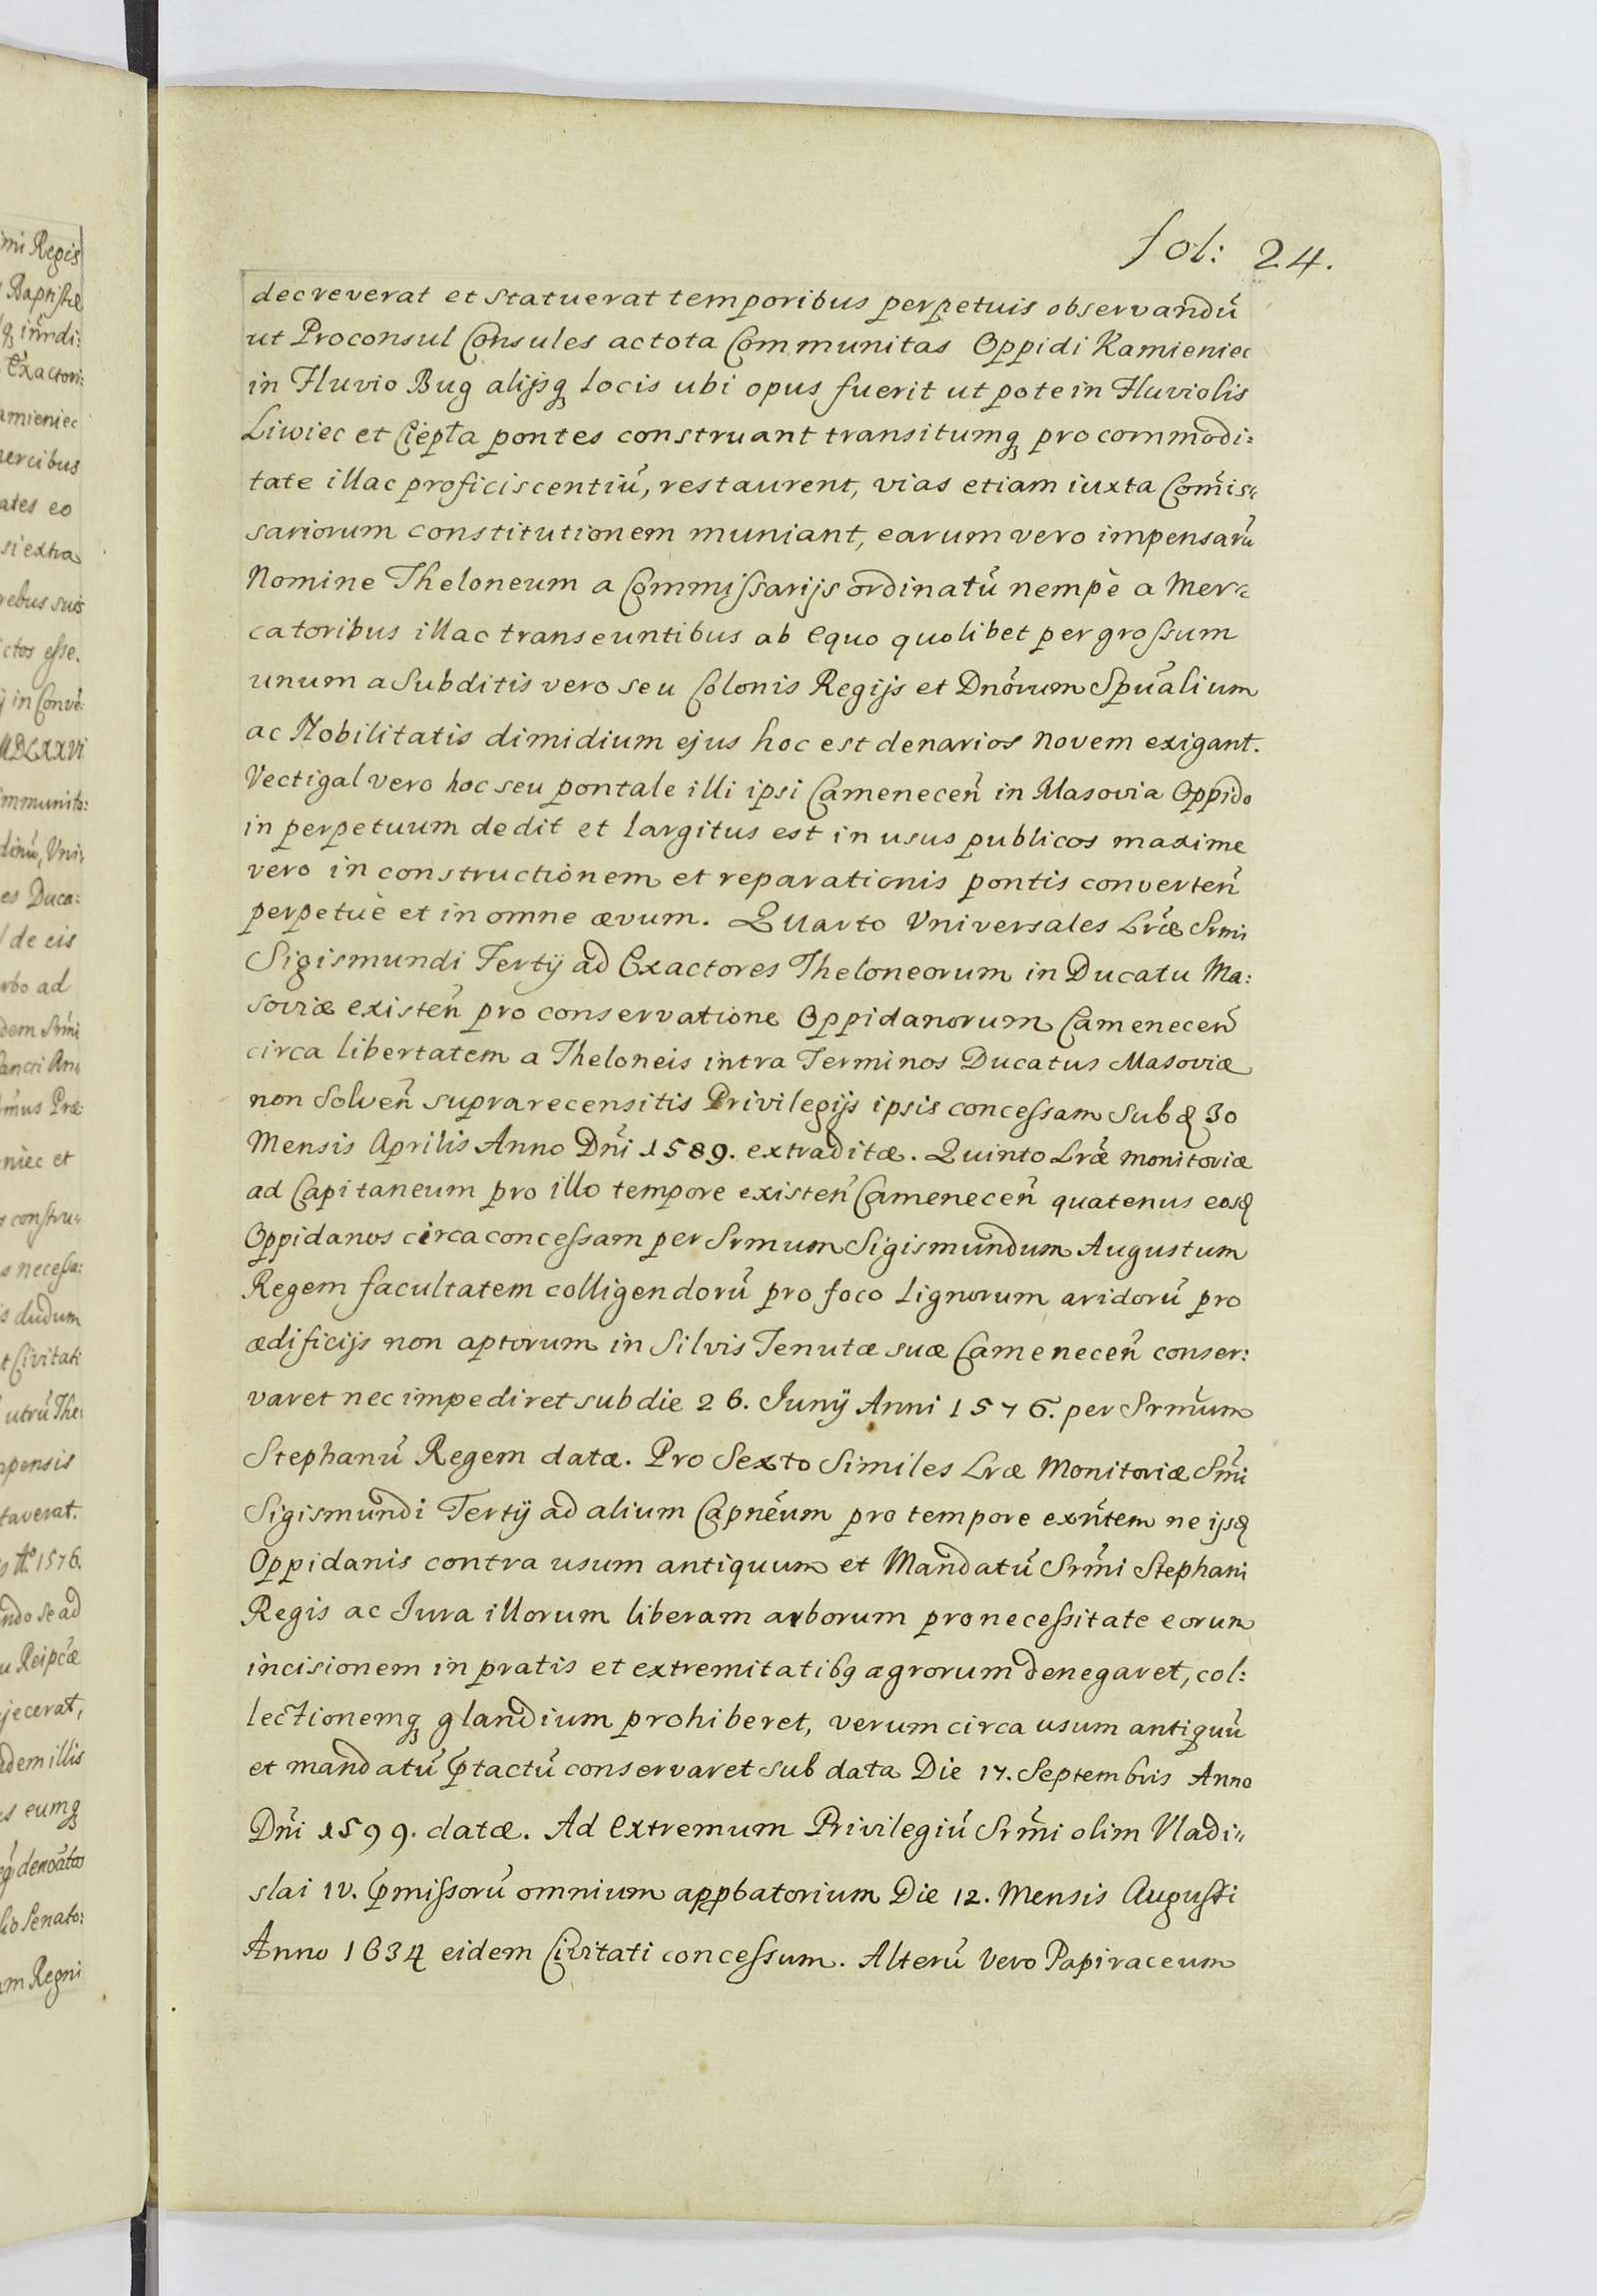 fol: 24.
decreverat et statuerat temporibus perpetuis observandũ
ut Proconsul Consules ac tota Communitas Oppidi Kamieniec
in Fluvio Bug alijsq̢ locis ubi opus fuerit ut pote in Fluviolis
Liwiec et Ciepła pontes construant transitumq̢ pro commodi:
tate illac proficiscentiũ, restaurent, vias etiam iuxta Com̃is:
sariorum constitutionem muniant, earum vero impensarũ
Nomine Theloneum a Commiſsarijs ordinatũ nempè a Mer:
catoribus illac transeuntibus ab Equo quolibet per groſsum
unum a Subditis vero seu Colonis Regijs et Dnõrum Spũalium
ac Nobilitatis dimidium ejus hoc est denarios novem exigant.
Vectigal vero hoc seu pontale illi ipsi Camenecen̄ in Masovia Oppido
in perpetuum dedit et largitus est in usus publicos maxime
vero in constructionem et reparationis pontis converten̄
perpetuè et in omne ævum. Quarto Vniversales Lr̃æ Srmi
Sigismundi Tertÿ ad Exactores Theloneorum in Ducatu Ma:
soviæ existen̄ pro conservatione Oppidanorum Camenecen̄
circa libertatem a Theloneis intra Terminos Ducatus Masoviæ
non Solven̄ supra recensitis Privilegijs ipsis conceſsam sub d 30
Mensis Aprilis Anno Dñi 1589. extraditæ. Quinto Lr̃æ monitoriæ
ad Capitaneum pro illo tempore existen̄ Camenecen̄ quatenus eosd
Oppidanos circa conceſsam per Srmum Sigismundum Augustum
Regem facultatem colligendorũ pro foco Lignorum aridorũ pro
ædificijs non aptorum in Silvis Tenutæ suæ Camenecen̄ conser:
varet nec impediret sub die 26. Junÿ Anni 1576. per Srm̃um
Stephanũ Regem datæ. Pro Sexto Similes Lræ Monitoriæ Sm̃i
Sigismundi Tertÿ ad alium Capnẽum pro tempore exñtem ne ijsd
Oppidanis contra usum antiquum et Mandatũ Srm̃i Stephani
Regis ac Jura illorum liberam arborum pro neceſsitate eorum
incisionem in pratis et extremitatibꝰ agrorum denegaret, col:
lectionemq̢ glandium prohiberet, verum circa usum antiquũ
et mandatũ p̃tactũ conservaret sub data Die 17. Septembris Anno
Dñi 1599. datæ. Ad Extremum Privilegiũ Srm̃i olim Vladi:
slai IV. p̃miſsorũ omnium appbatorium Die 12. Mensis Augusti
Anno 1634 eidem Civitati conceſsum. Alterũ Vero Papiraceum